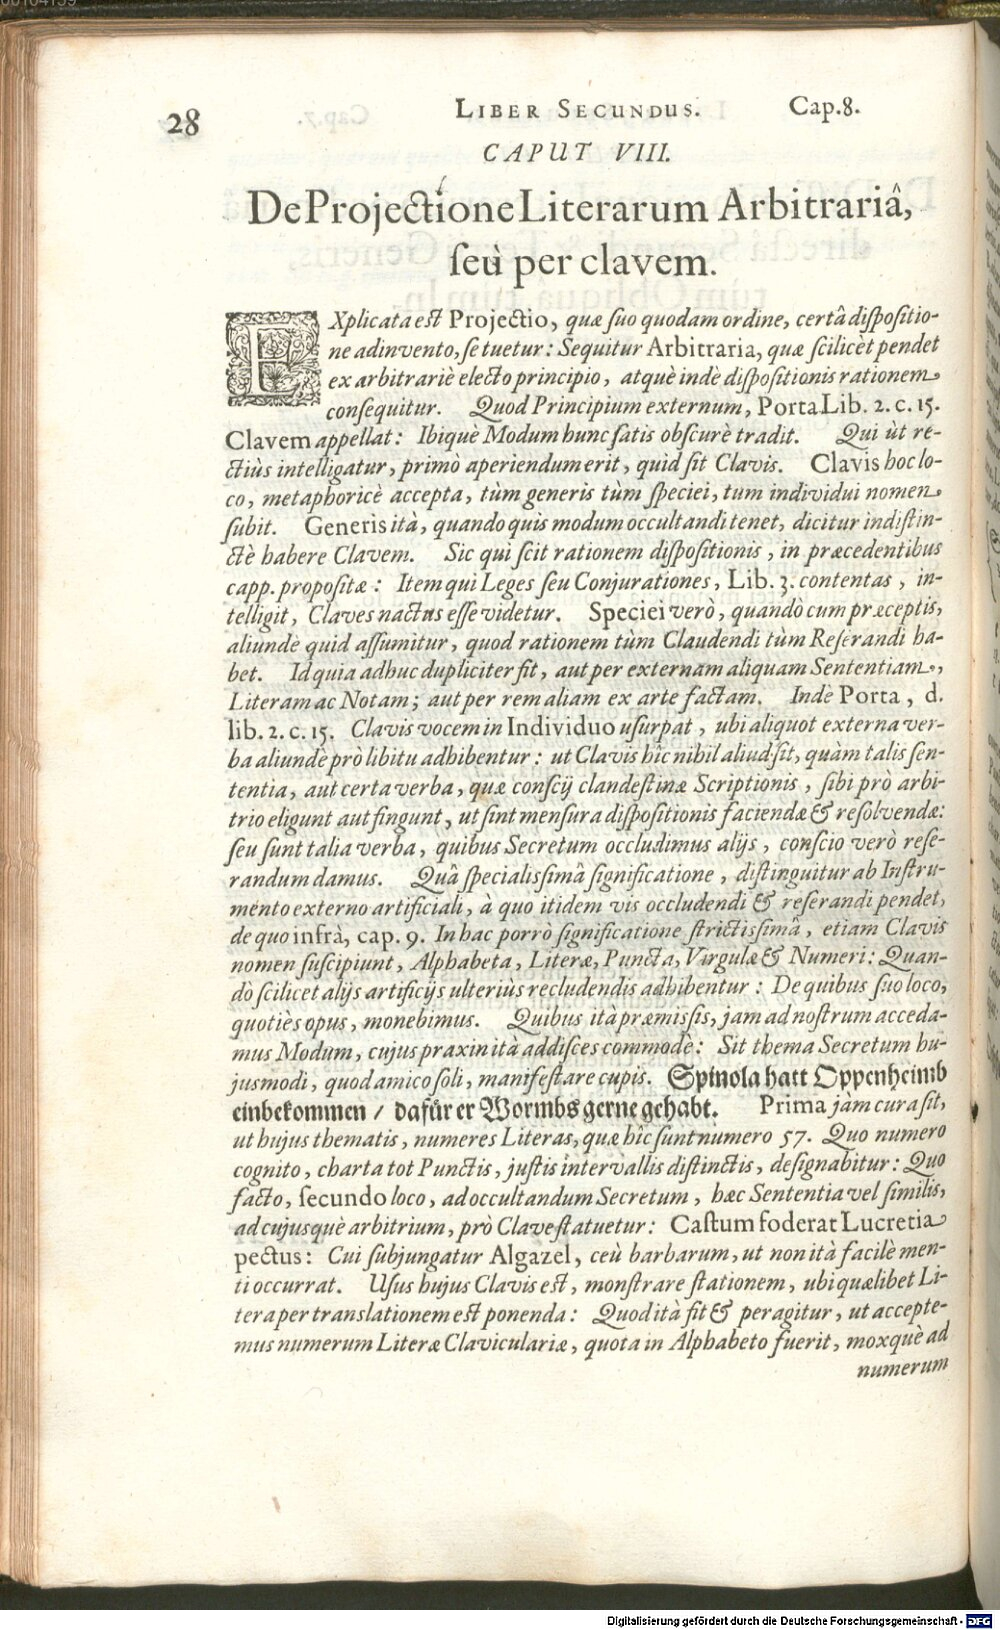 28
LIBER SECUNDUS.
Cap.8.
CAPUT VIII.
De Projectione Literarum Arbitrariâ,
ſeù per clavem.
EXplicata est Projectio, quæ ſuo quodam ordine, certâ diſpoſitio-
ne adinvento, ſe tuetur: Sequitur Arbitraria, quæ ſcilicèt pendet
ex arbitrariè electo principio, atquè indè diſpoſitionis rationem
conſequitur. Quod Principium externum, Porta Lib. 2. c. 15.
Clavem appellat: Ibiquè Modum hunc ſatis obſcurè tradit. Qui ùt re-
ctiùs intelligatur, primò aperiendum erit, quid ſit Clavis. Clavis hoc lo-
co, metaphoricè accepta, tùm generis tùm ſpeciei, tum individui nomen
ſubit. Generis ità, quando quis modum occultandi tenet, dicitur indiſtin-
ctè habere Clavem. Sic qui ſcit rationem diſpoſitionis, in præcedentibus
capp. propoſitæ: Item qui Leges ſeu Conjurationes, Lib. 3. contentas, in-
telligit, Claves nactus eſſe videtur. Speciei verò, quandò cum præceptis,
aliunde quid aſſumitur, quod rationem tùm Claudendi tùm Reſerandi ha-
bet. Id quia adhuc dupliciter fit, aut per externam aliquam Sententiam,
Literam ac Notam; aut per rem aliam ex arte factam. Inde Porta, d.
lib. 2. c. 15. Clavis vocem in Individuo uſurpat, ubi aliquot externa ver-
ba aliundè prò libitu adhibentur: ut Clavis hîc nihil aliud ſit, quàm talis ſen-
tentia, aut certa verba, quæ conſcij clandeſtinæ Scriptionis, ſibi prò arbi-
trio eligunt aut fingunt, ut ſint menſura diſpoſitionis faciendæ & reſolvendæ:
ſeu ſunt talia verba, quibus Secretum occludimus alijs, conſcio verò reſe-
randum damus. Quâ ſpecialiſſimâ ſignificatione, diſtinguitur ab Inſtru-
mento externo artificiali, à quo itidem vis occludendi & reſerandi pendet,
de quo infrà, cap. 9. In hac porrò ſignificatione ſtrictiſſimâ, etiam Clavis
nomen ſuſcipiunt, Alphabeta, Literæ, Puncta, Virgulæ & Numeri: Quan-
do ſcilicet alijs artificijs ulteriùs recludendis adhibentur: De quibus ſuo loco,
quotiès opus, monebimus. Quibus ità præmiſſis, jam ad noſtrum acceda-
mus Modum, cujus praxin ità addiſces commodè: Sit thema Secretum hu-
jusmodi, quod amico ſoli, manifeſtare cupis. Spinola hatt Oppenheimb
einbekommen / dafür er Wormbs gerne gehabt. Prima jàm cura ſit,
ut hujus thematis, numeres Literas, quæ hîc ſunt numero 57. Quo numero
cognito, charta tot Punctis, juſtis intervallis diſtinctis, deſignabitur: Quo
facto, ſecundo loco, ad occultandum Secretum, hæc Sententia vel ſimilis,
ad cujusquè arbitrium, prò Clave ſtatuetur: Caſtum foderat Lucretia
pectus: Cui ſubjungatur Algazel, ceù barbarum, ut non ità facilè men-
ti occurrat. Uſus hujus Clavis eſt, monſtrare ſtationem, ubi quælibet Li-
tera per translationem eſt ponenda: Quod ità fit & peragitur, ut accepte-
mus numerum Literæ Claviculariæ, quota in Alphabeto fuerit, moxquè ad
numerum
Digitalisierung gefördert durch die Deutsche Forschungsgemeinschaft - DFG